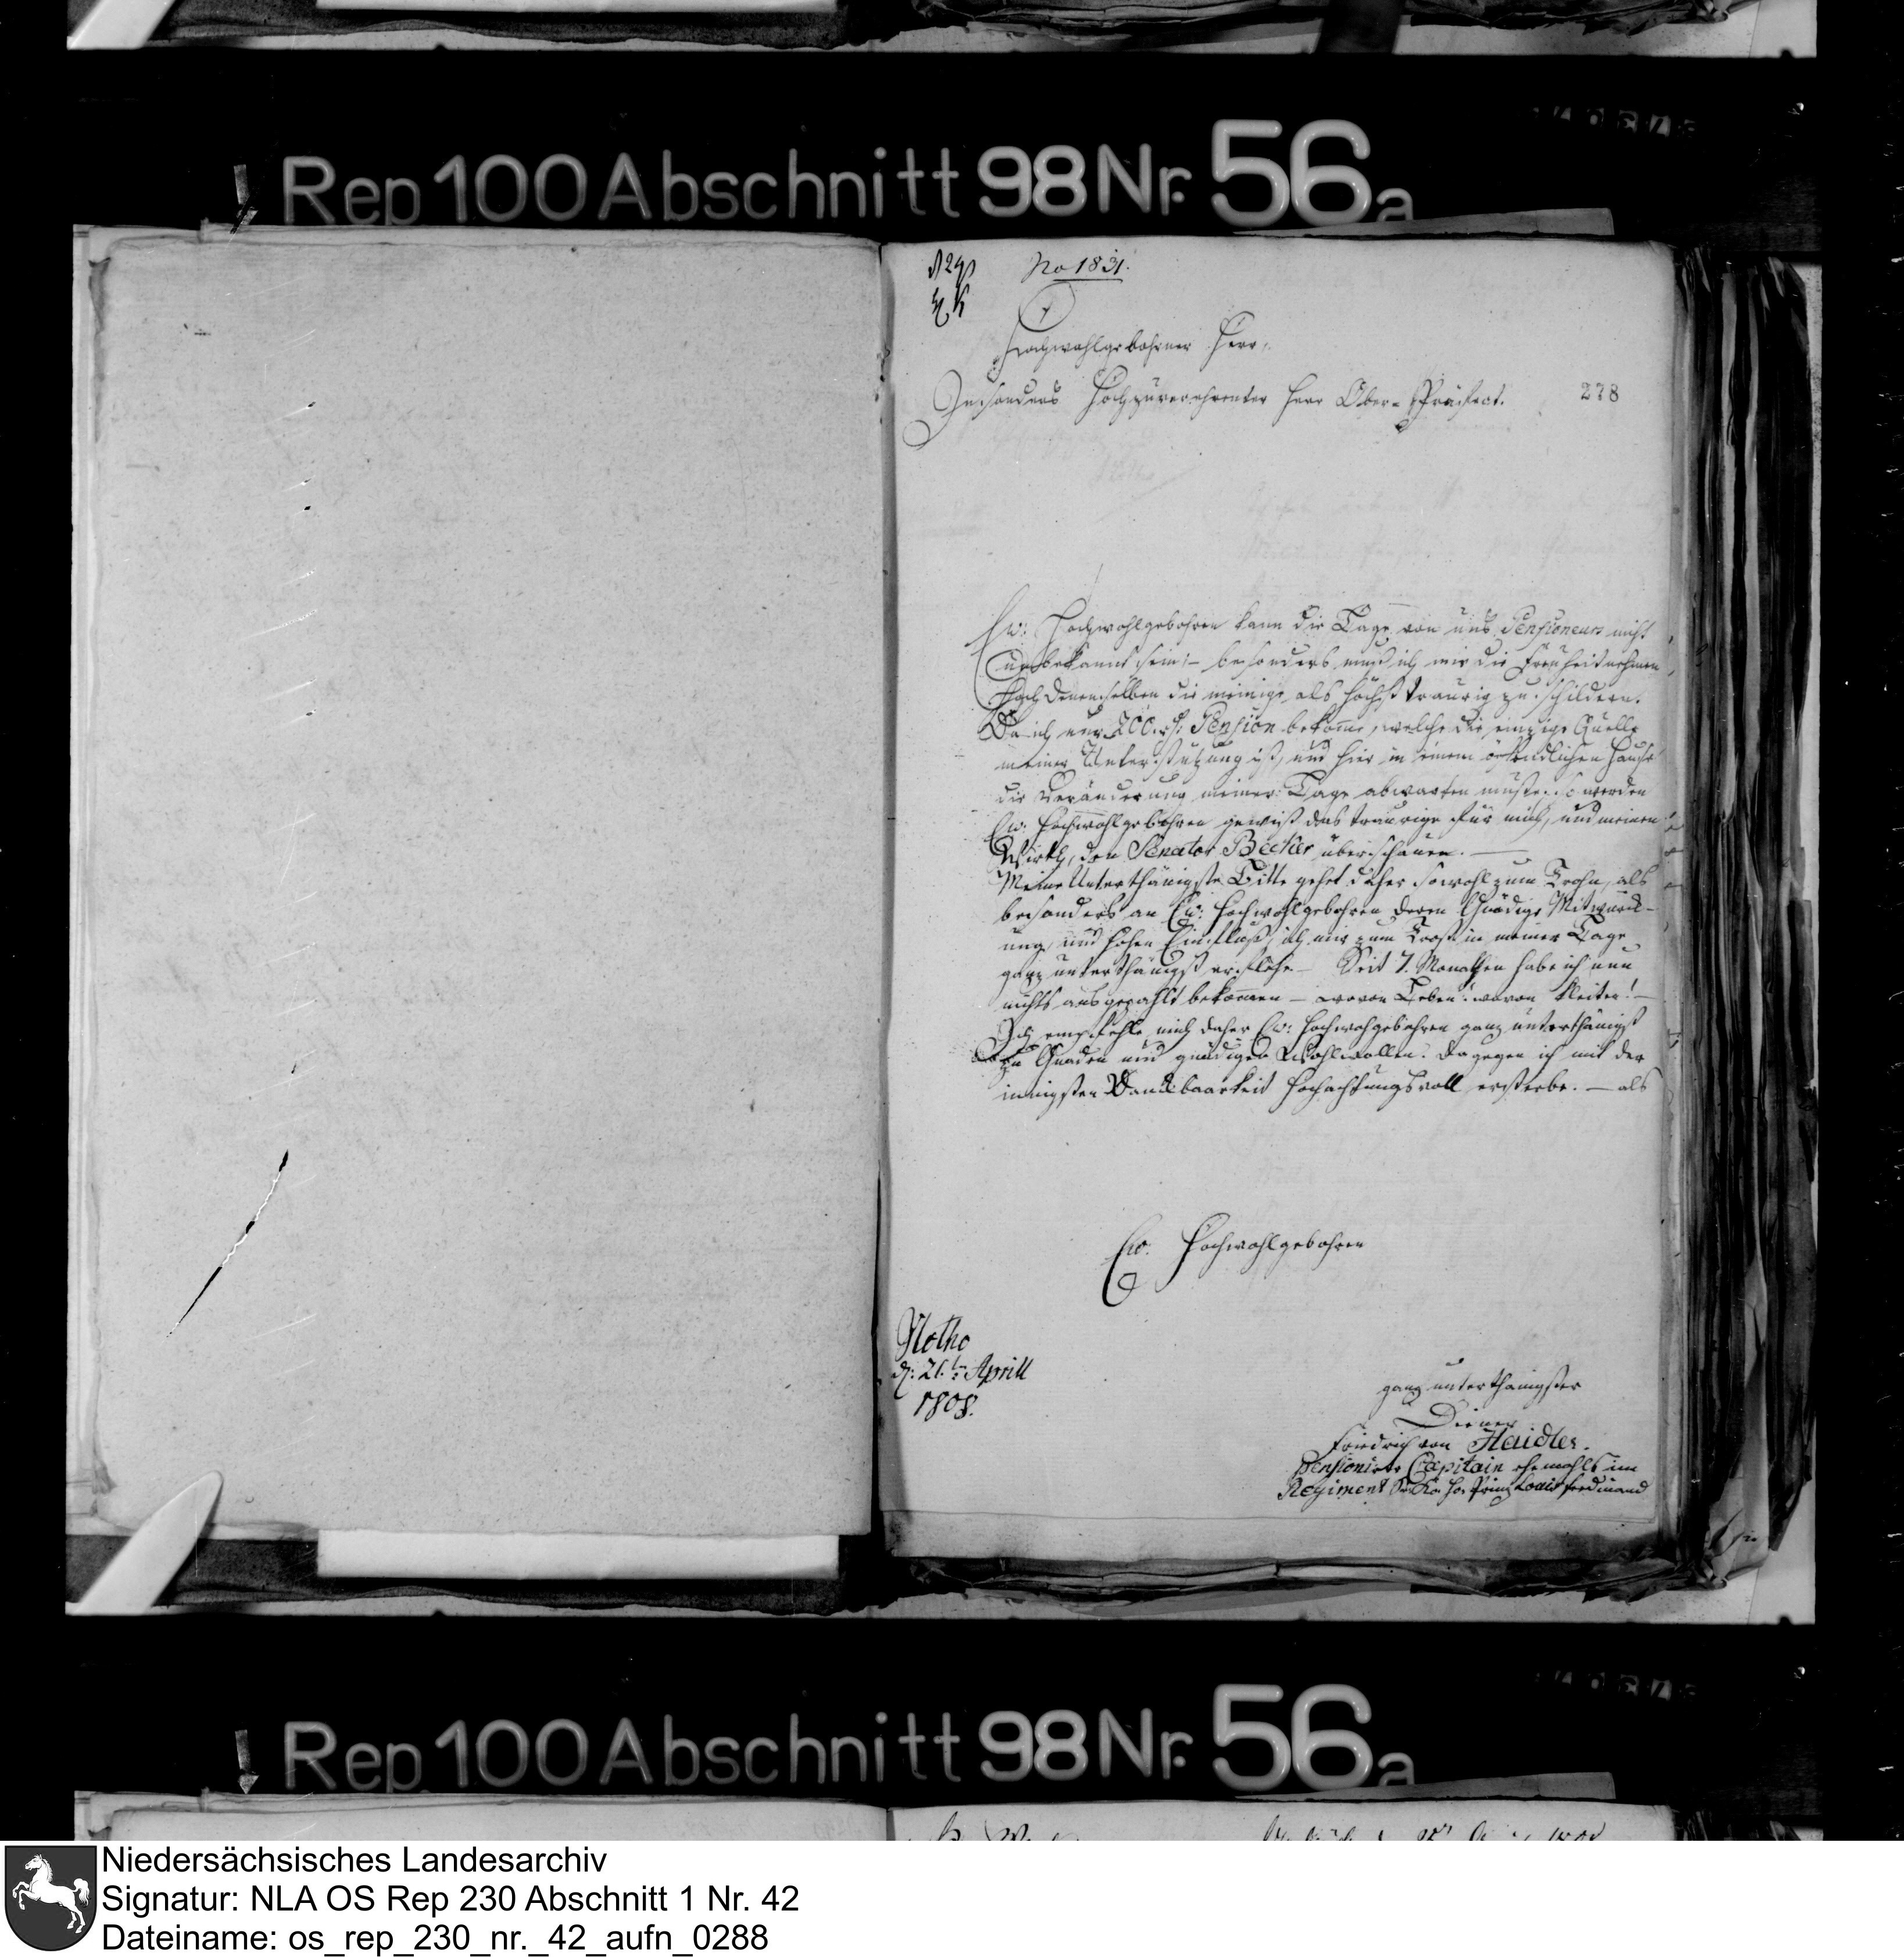 Rep 100 Abschnitt 98 Nr. 56a
No 1831.
Hochwohlgebohrner Herr,
Insonders Hochzuverehrenter Herr Ober-Präfect.
228
Ew: Hochwohlgebohren kann die Lage von uns Pensioneurs nicht
unbekannt sein; – besonders muß ich mir die Freyheit nehmen
Hoch Denenselben die meinige als höchst traurig zu schildern.
Da ich nur 200. rh: Pension bekome, welche die einzige Quelle
meiner Unterstützung ist, und hier in einem öffendlichen Hause
die Veränderung meiner Lage abwarten muste. So werden
Ew: Hochwohlgebohren gewiß das traurige für mich, und meinen
Wirth, den Senator Becker überschauen. —
Meine Unterthänigste Bitte gehet daher sowohl zum Trohn, als
besonders an Ew: Hochwohlgebohren deren Gnädige Mitwürck-
ung, und hohen Einfluß, ich mir zum Trost in meiner Lage
ganz unterthänigst erflehe – Seit 7. Monathen habe ich nun
nichts ausgezahlt bekomen – wovon Leben! wovon kleiten! –
Ich empfehle mich daher Ew: Hochwohgebohren ganz unterthänigst
zu Gnaden und gnädigen Wohlwollen. Dagegen ich mit der
innigsten Danckbaarkeit Hochachtungsvoll ersterbe. – als
Ew. Hochwohlgebohren
Vlotho
d: 21.ten Aprill
1808.
ganz unterthänigster
Diener
Friedrich von Haidler.
Pensionirter Capitain ehemahls im
Regiment Sr. Kö. Ho. Prinz Louis Ferdinand
Rep 100 Abschnitt 98 Nr. 56a
Niedersächsisches Landesarchiv
Signatur: NLA OS Rep 230 Abschnitt 1 Nr. 42
Dateiname: os_rep_230_nr._42_aufn_0288